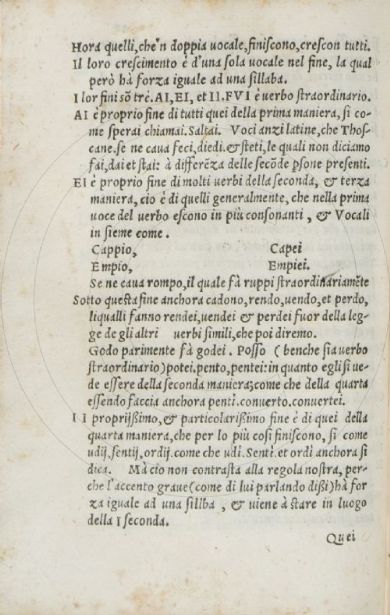 Hora quelli, che'n doppia uocale, finiscono, crescon tutti.
Il loro crescimento è d'una sola uocale nel fine, la qual
però hà forza iguale ad una sillaba.
I lor fini sõ tre. AI, EI, et II. FVI è uerbo straordinario.
AI è proprio fine di tutti quei della prima maniera, si co-
me sperai chiamai. Saltai. Voci anzi latine, che Thos-
cane. se ne caua feci, diedi. & steti, le quali non diciamo
fai, dai et stai: à differẽza delle secõde psone presenti.
EI è proprio fine di molti uerbi della seconda, & terza
maniera, cio è di quelli generalmente, che nella prima
uoce del uerbo escono in più consonanti, & Vocali
in sieme come.
Cappio, Capei
Empio, Empiei.
Se ne caua rompo, il quale fà ruppi straordinariamẽte
Sotto questa fine anchora cadono, rendo, uendo, et perdo,
liquali fanno rendei, uendei & perdei fuor della leg-
ge de gli altri uerbi simili, che poi diremo.
Godo parimente fà godei. Posso (benche sia uerbo
straordinario) potei. pento, pentei: in quanto egli si ue-
de essere della seconda maniera; come che della quarta
essendo faccia anchora penti. conuerto. conuertei.
II proprijßimo, & particolarißimo fine è di quei della
quarta maniera, che per lo più cosi finiscono, si come
udij, sentij, ordij. come che udi. Senti. et ordì anchora si
dica. Mà cio non contrasta alla regola nostra, per-
che l'accento graue (come di lui parlando dißi) hà for
za iguale ad una sillba, & uiene à stare in luogo
della I seconda.
Quei